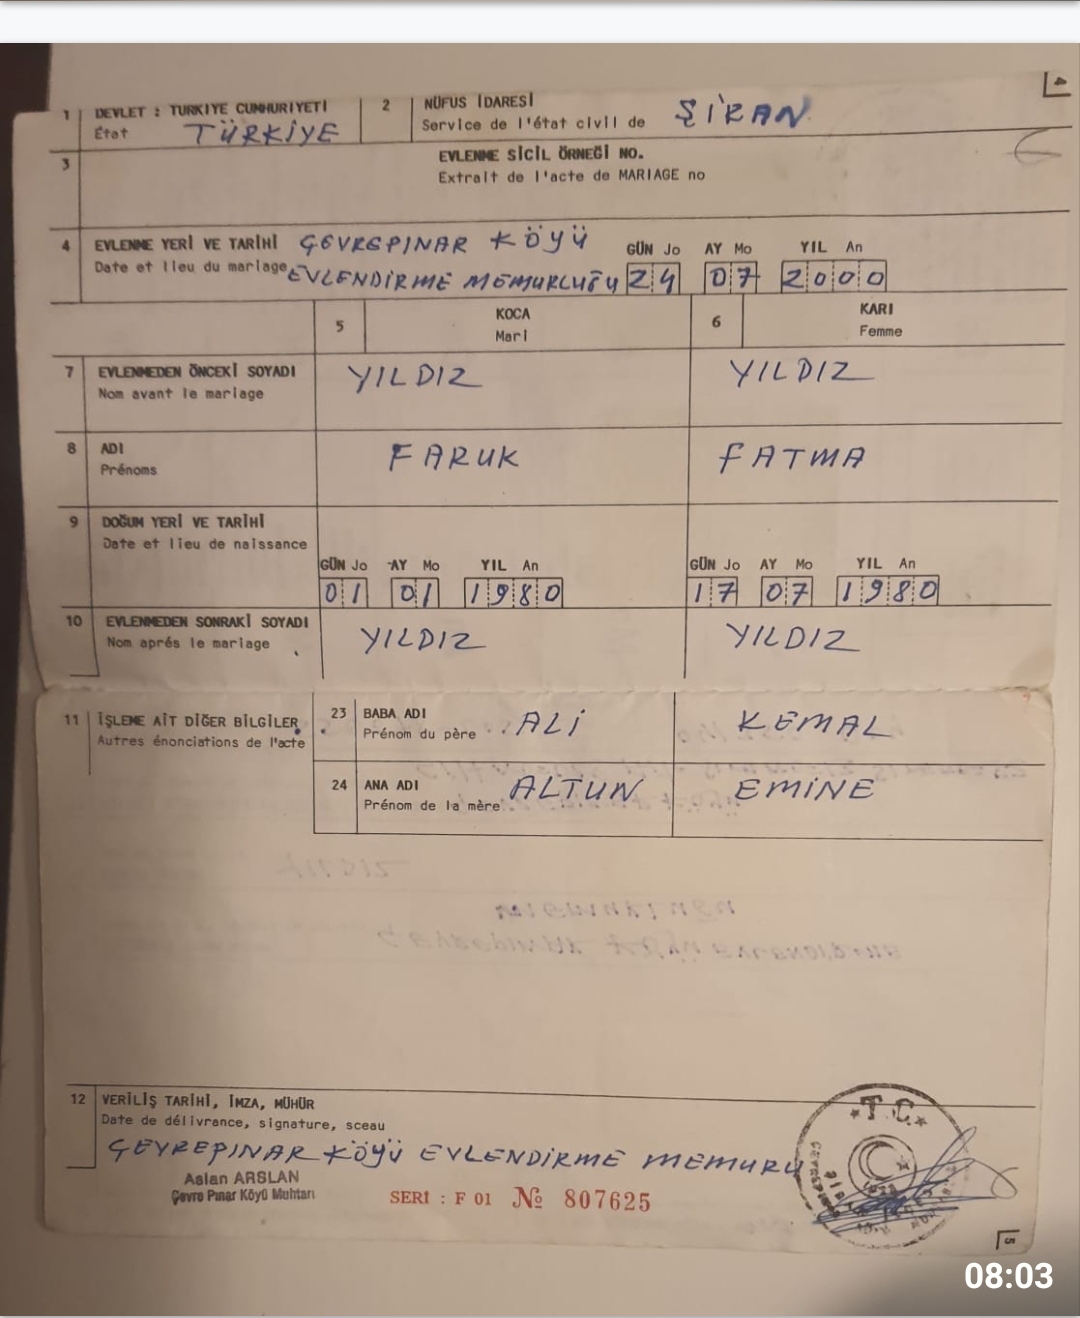 1 DEVLET : TURKIYE CUMHURIYETI
État TÜRKİYE
2 NÜFUS İDARESİ
Service de l'état civil de ŞİRAN
3 EVLENME SİCİL ÖRNEĞİ NO.
Extrait de l'acte de MARIAGE no
4 EVLENME YERİ VE TARİHİ ÇEVREPINAR KÖYÜ GÜN Jo AY Mo YIL An
Date et lieu du mariage EVLENDİRME MEMURLUĞU 24 07 2000
5 KOCA
Mari
6 KARI
Femme
7 EVLENMEDEN ÖNCEKİ SOYADI YILDIZ YILDIZ
Nom avant le mariage
8 ADI FARUK FATMA
Prénoms
9 DOĞUM YERİ VE TARİHİ
Date et lieu de naissance
GÜN Jo AY Mo YIL An GÜN Jo AY Mo YIL An
01 01 1980 17 07 1980
10 EVLENMEDEN SONRAKİ SOYADI YILDIZ YILDIZ
Nom aprés le mariage
11 İŞLEME AİT DİĞER BİLGİLER
Autres énonciations de l'acte
23 BABA ADI ALİ KEMAL
Prénom du père
24 ANA ADI ALTUN EMİNE
Prénom de la mère
12 VERİLİŞ TARİHİ, İMZA, MÜHÜR
Date de délivrance, signature, sceau
ÇEVREPINAR KÖYÜ EVLENDİRME MEMURU
Aslan ARSLAN
Çevre Pınar Köyü Muhtarı
SERİ : F 01 № 807625
T.C.
5
08:03